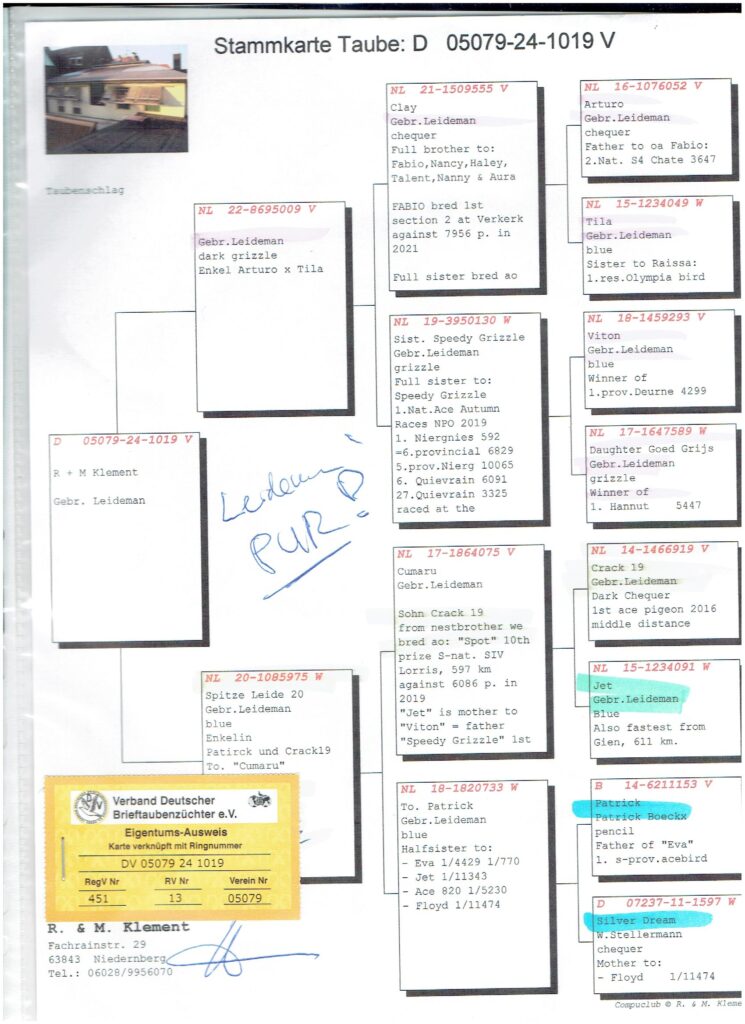 Stammkarte Taube: D 05079-24-1019 V
Taubenschlag
D 05079-24-1019 V
R + M Klement
Gebr. Leideman
NL 22-8695009 V
Gebr.Leideman
dark grizzle
Enkel Arturo x Tila
NL 20-1085975 W
Spitze Leide 20
Gebr.Leideman
blue
Enkelin
Patirck und Crack19
To. "Cumaru"
NL 21-1509555 V
Clay
Gebr.Leideman
chequer
Full brother to:
Fabio,Nancy,Haley,
Talent,Nanny & Aura
FABIO bred 1st
section 2 at Verkerk
against 7956 p. in
2021
Full sister bred ao
NL 19-3950130 W
Sist. Speedy Grizzle
Gebr.Leideman
grizzle
Full sister to:
Speedy Grizzle
1.Nat.Ace Autumn
Races NPO 2019
1. Niergnies 592
=6.provincial 6829
5.prov.Nierg 10065
6. Quievrain 6091
27.Quievrain 3325
raced at the
NL 17-1864075 V
Cumaru
Gebr.Leideman
Sohn Crack 19
from nestbrother we
bred ao: "Spot" 10th
prize S-nat. SIV
Lorris, 597 km
against 6086 p. in
2019
"Jet" is mother to
"Viton" = father
"Speedy Grizzle" 1st
NL 18-1820733 W
To. Patrick
Gebr.Leideman
blue
Halfsister to:
- Eva 1/4429 1/770
- Jet 1/11343
- Ace 820 1/5230
- Floyd 1/11474
NL 16-1076052 V
Arturo
Gebr.Leideman
chequer
Father to oa Fabio:
2.Nat. S4 Chate 3647
NL 15-1234049 W
Tila
Gebr.Leideman
blue
Sister to Raissa:
1.res.Olympia bird
NL 18-1459293 V
Viton
Gebr.Leideman
blue
Winner of
1.prov.Deurne 4299
NL 17-1647589 W
Daughter Goed Grijs
Gebr.Leideman
grizzle
Winner of
1. Hannut 5447
NL 14-1466919 V
Crack 19
Gebr.Leideman
Dark Chequer
1st ace pigeon 2016
middle distance
NL 15-1234091 W
Jet
Gebr.Leideman
Blue
Also fastest from
Gien, 611 km.
B 14-6211153 V
Patrick
Patrick Boeckx
pencil
Father of "Eva"
1. s-prov.acebird
D 07237-11-1597 W
Silver Dream
W.Stellermann
chequer
Mother to:
- Floyd 1/11474
PUR
Verband Deutscher
Brieftaubenzüchter e.V.
Eigentums-Ausweis
Karte verknüpft mit Ringnummer
DV 05079 24 1019
RegV Nr RV Nr Verein Nr
451 13 05079
R. & M. Klement
Fachrainstr. 29
63843 Niedernberg
Tel.: 06028/9956070
Compuclub © R. & M. Kleme